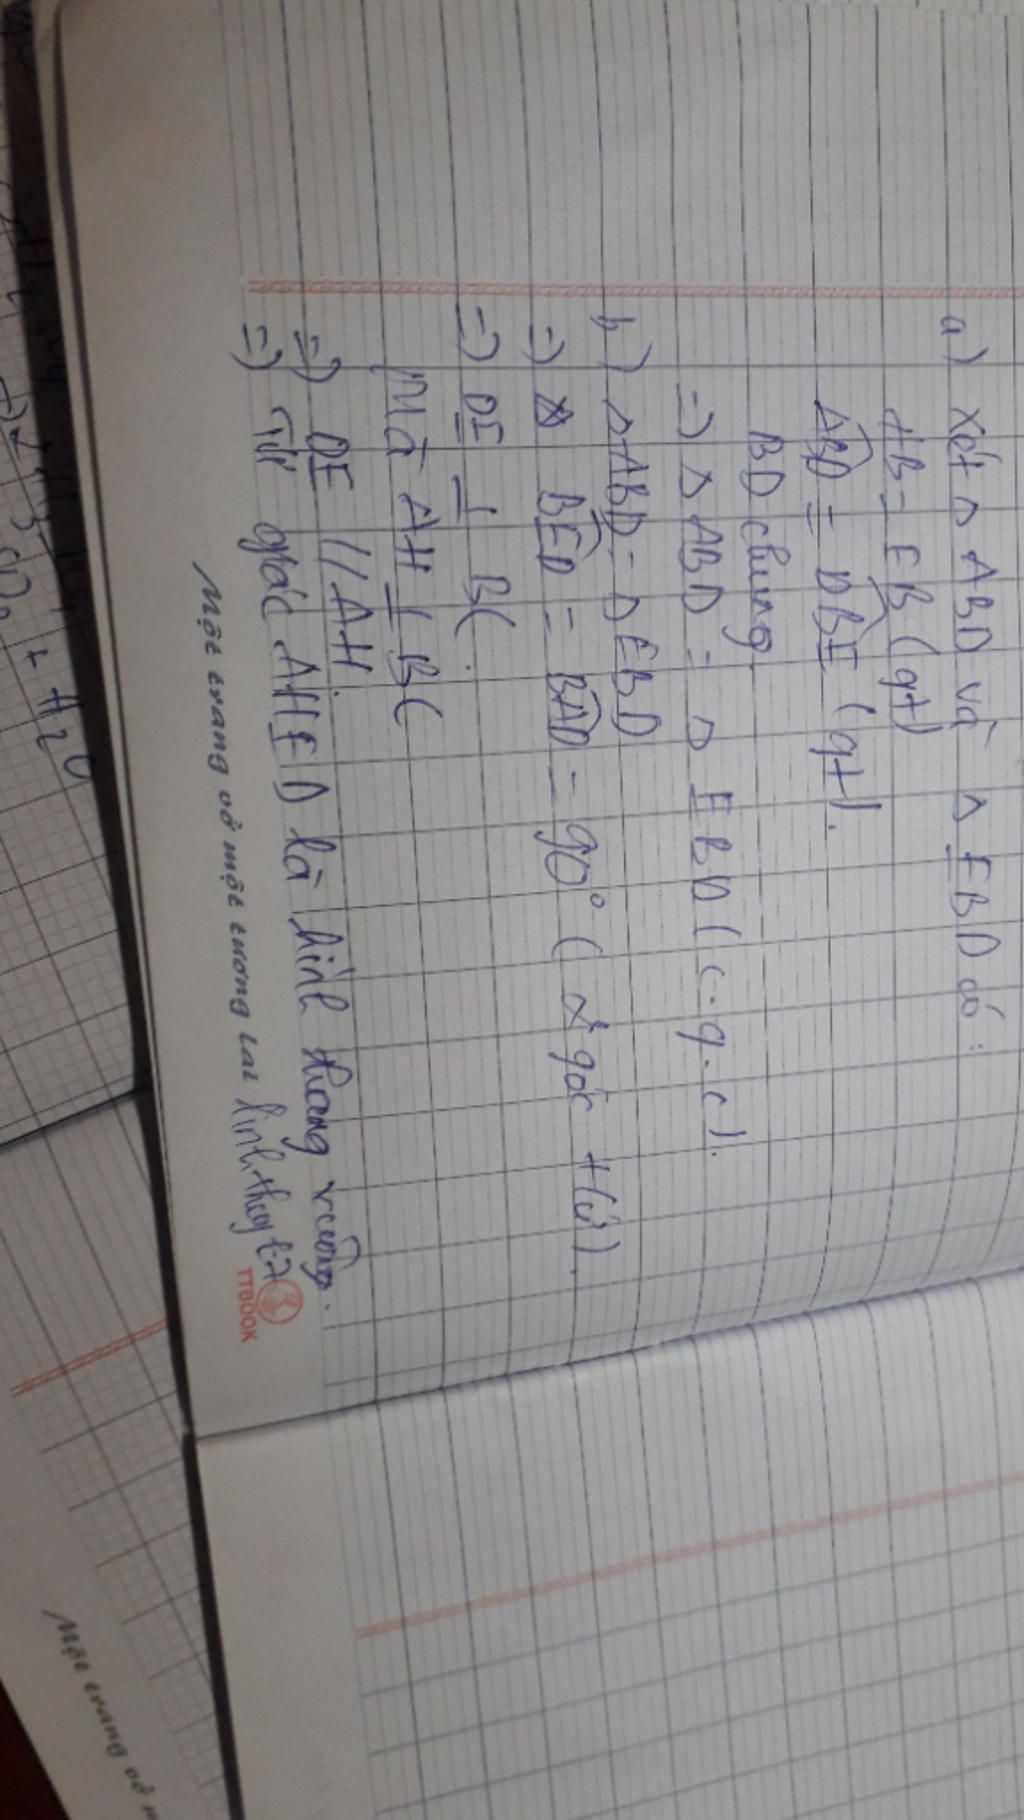 a) Xét △ ABD và △ EBD có:
AB = EB (gt)
ABD = DBE (gt).
BD chung
=> △ ABD = △ EBD (c.g.c).
b) △ ABD = △ EBD
=> BED = BAD = 90° (2 góc tứ).
=> DE ⊥ BC.
Mà AH ⊥ BC
=> DE // AH.
=> Tứ giác AHED là hình thang vuông.
Một trang vở một tương lai linhthuy
TTBOOK
+ H2O
Một trang vở m